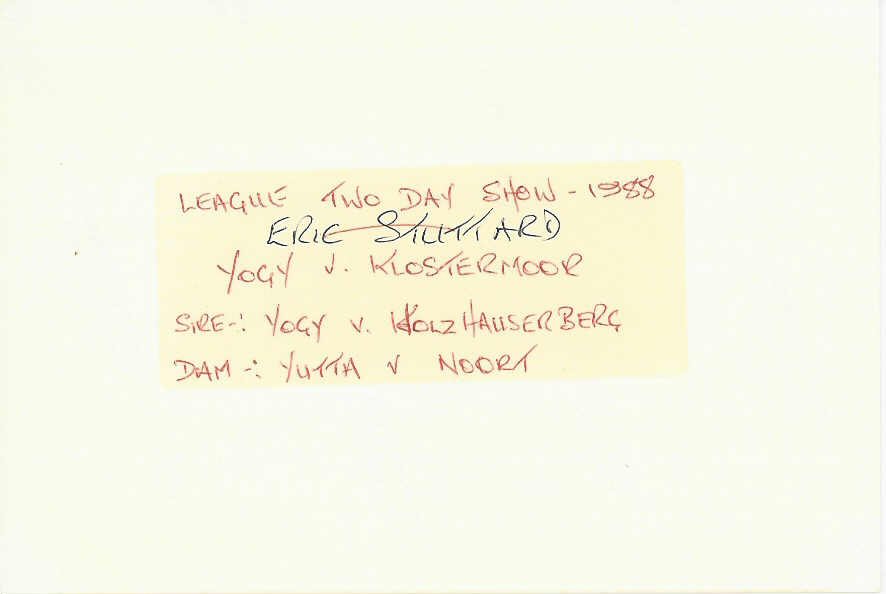 LEAGUE TWO DAY SHOW - 1988
ERIC STUTTARD
YOGY V. KLOSTERMOOR
SIRE-: YOGY V. HOLZHAUSERBERG
DAM -: YUTTA V NOORT